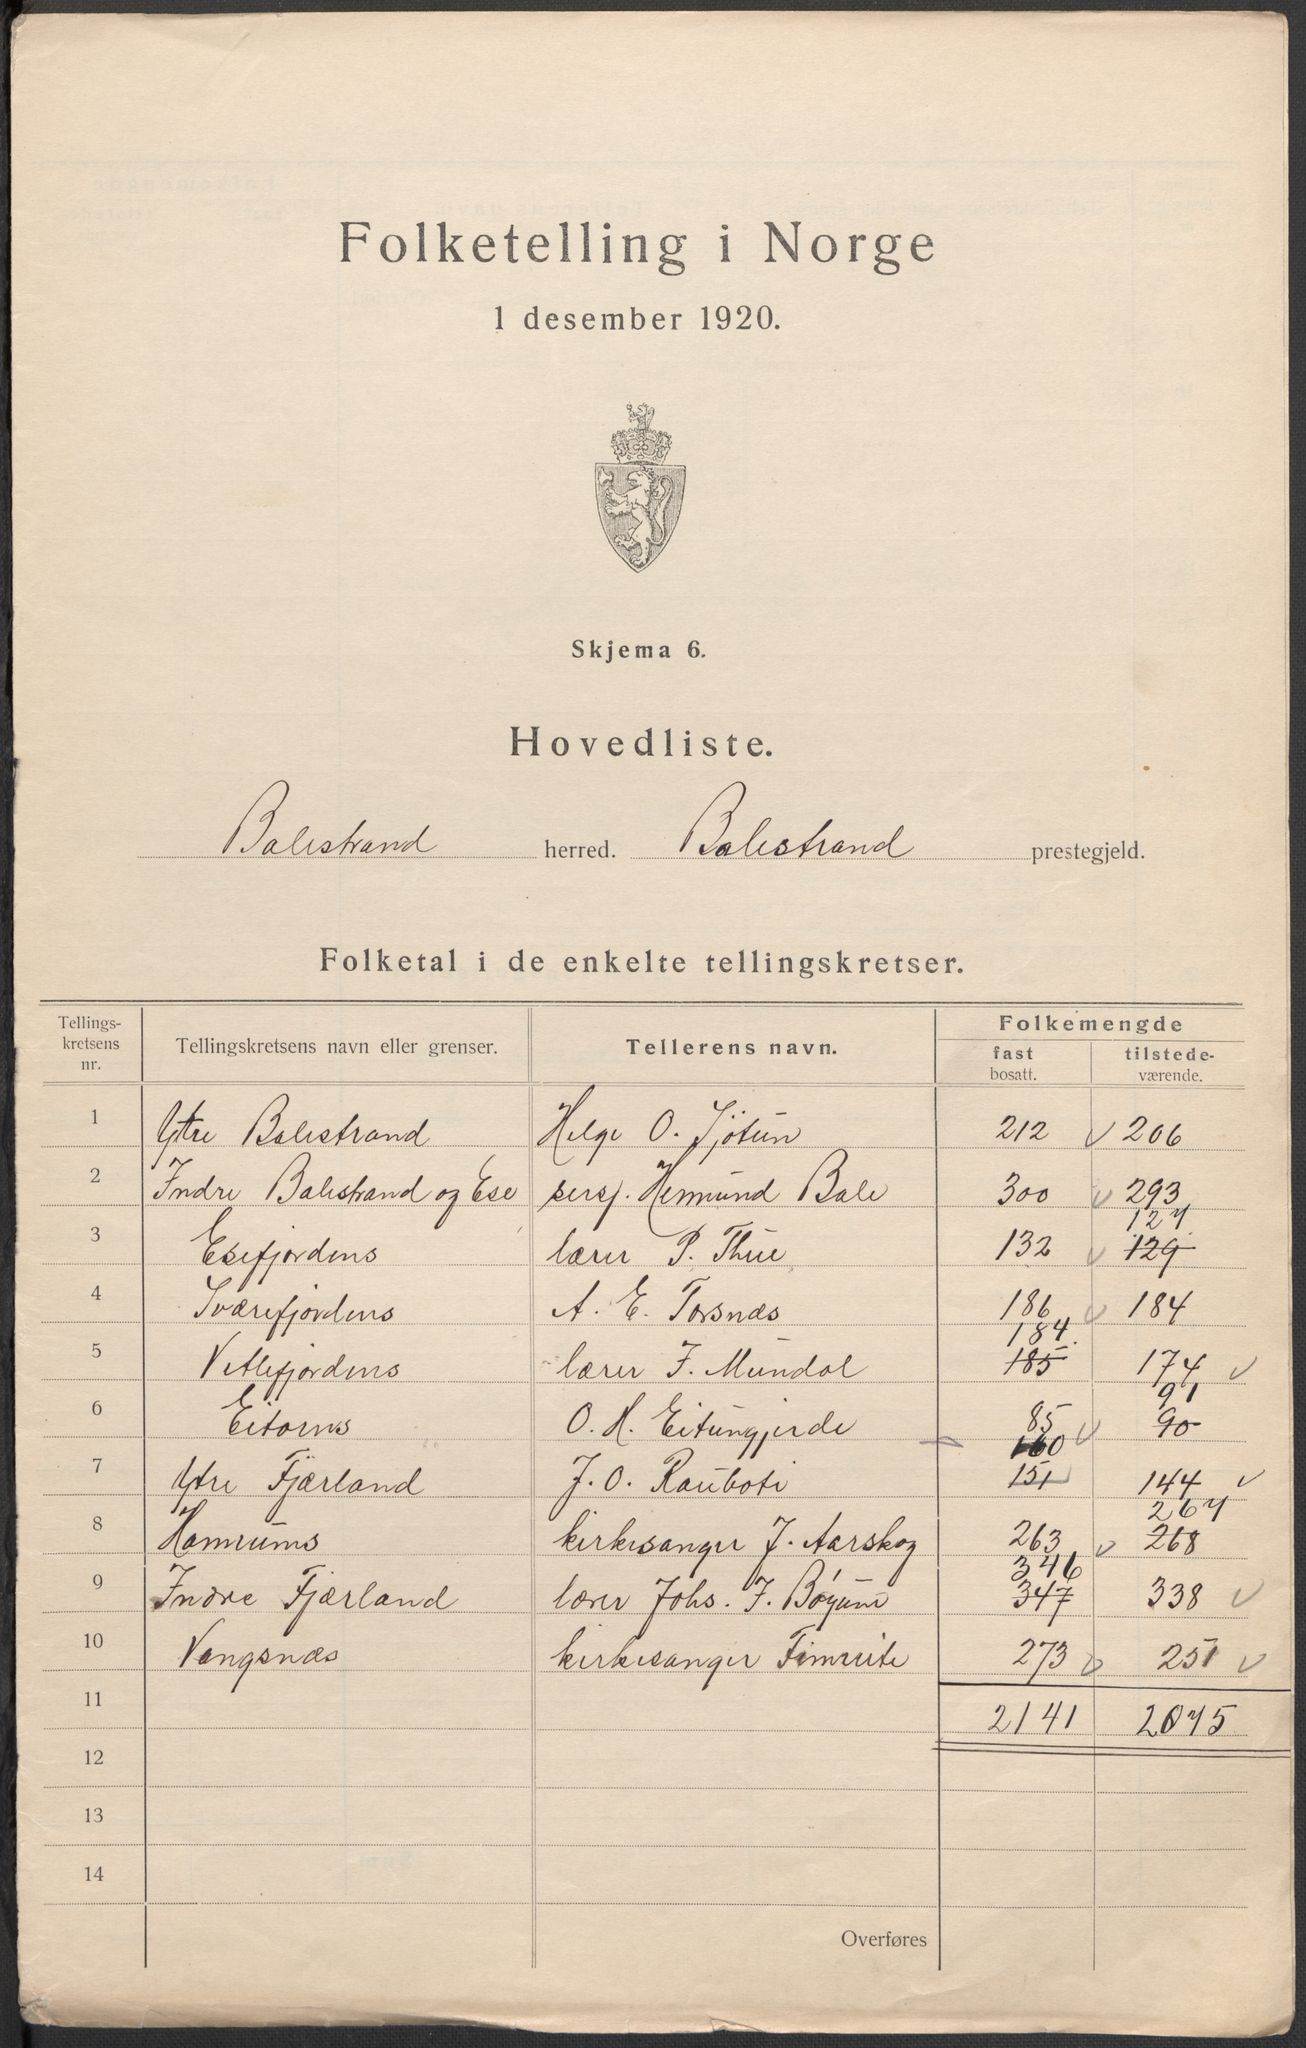 Folketelling i Norge
1 desember 1920.
Skjema 6.
Hovedliste.
Balestrand herred. Balestrand prestegjeld.
Folketal i de enkelte tellingskretser.
Tellings-
kretsens
nr.
Tellingskretsens navn eller grenser.
Tellerens navn.
Folkemengde
fast
bosatt.
tilstede-
værende.
1 Ytre Balestrand Helge O. Tjötun 212 206
2 Indre Balestrand og Ese sersj. Hermund Bale 300 293
127
3 Esefjordens lærer P. Thue 132 129
4 Sværefjordens A. E. Torsnæs 186 184
184
5 Vetlefjordens lærer J. Mundal 185 174
91
6 Eitorns O. H. Eitungjerde 85 90
160
7 Ytre Fjærland J. O. Rauboti 151 144
267
8 Hamrums kirkesanger J. Aarskog 263 268
346
9 Indre Fjærland lærer Johs. J. Bøyum 347 338
10 Vangsnæs kirkesanger Fimreite 273 251
11 2141 2075
12
13
14
Overføres